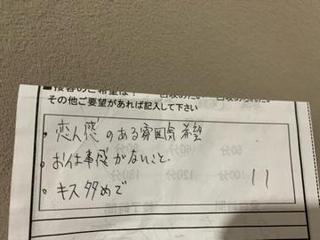 ■接客のご希望は?
その他ご要望があれば記入して下さい
・恋人感のある雰囲気希望
・お仕事感がないこと
・キス多めで